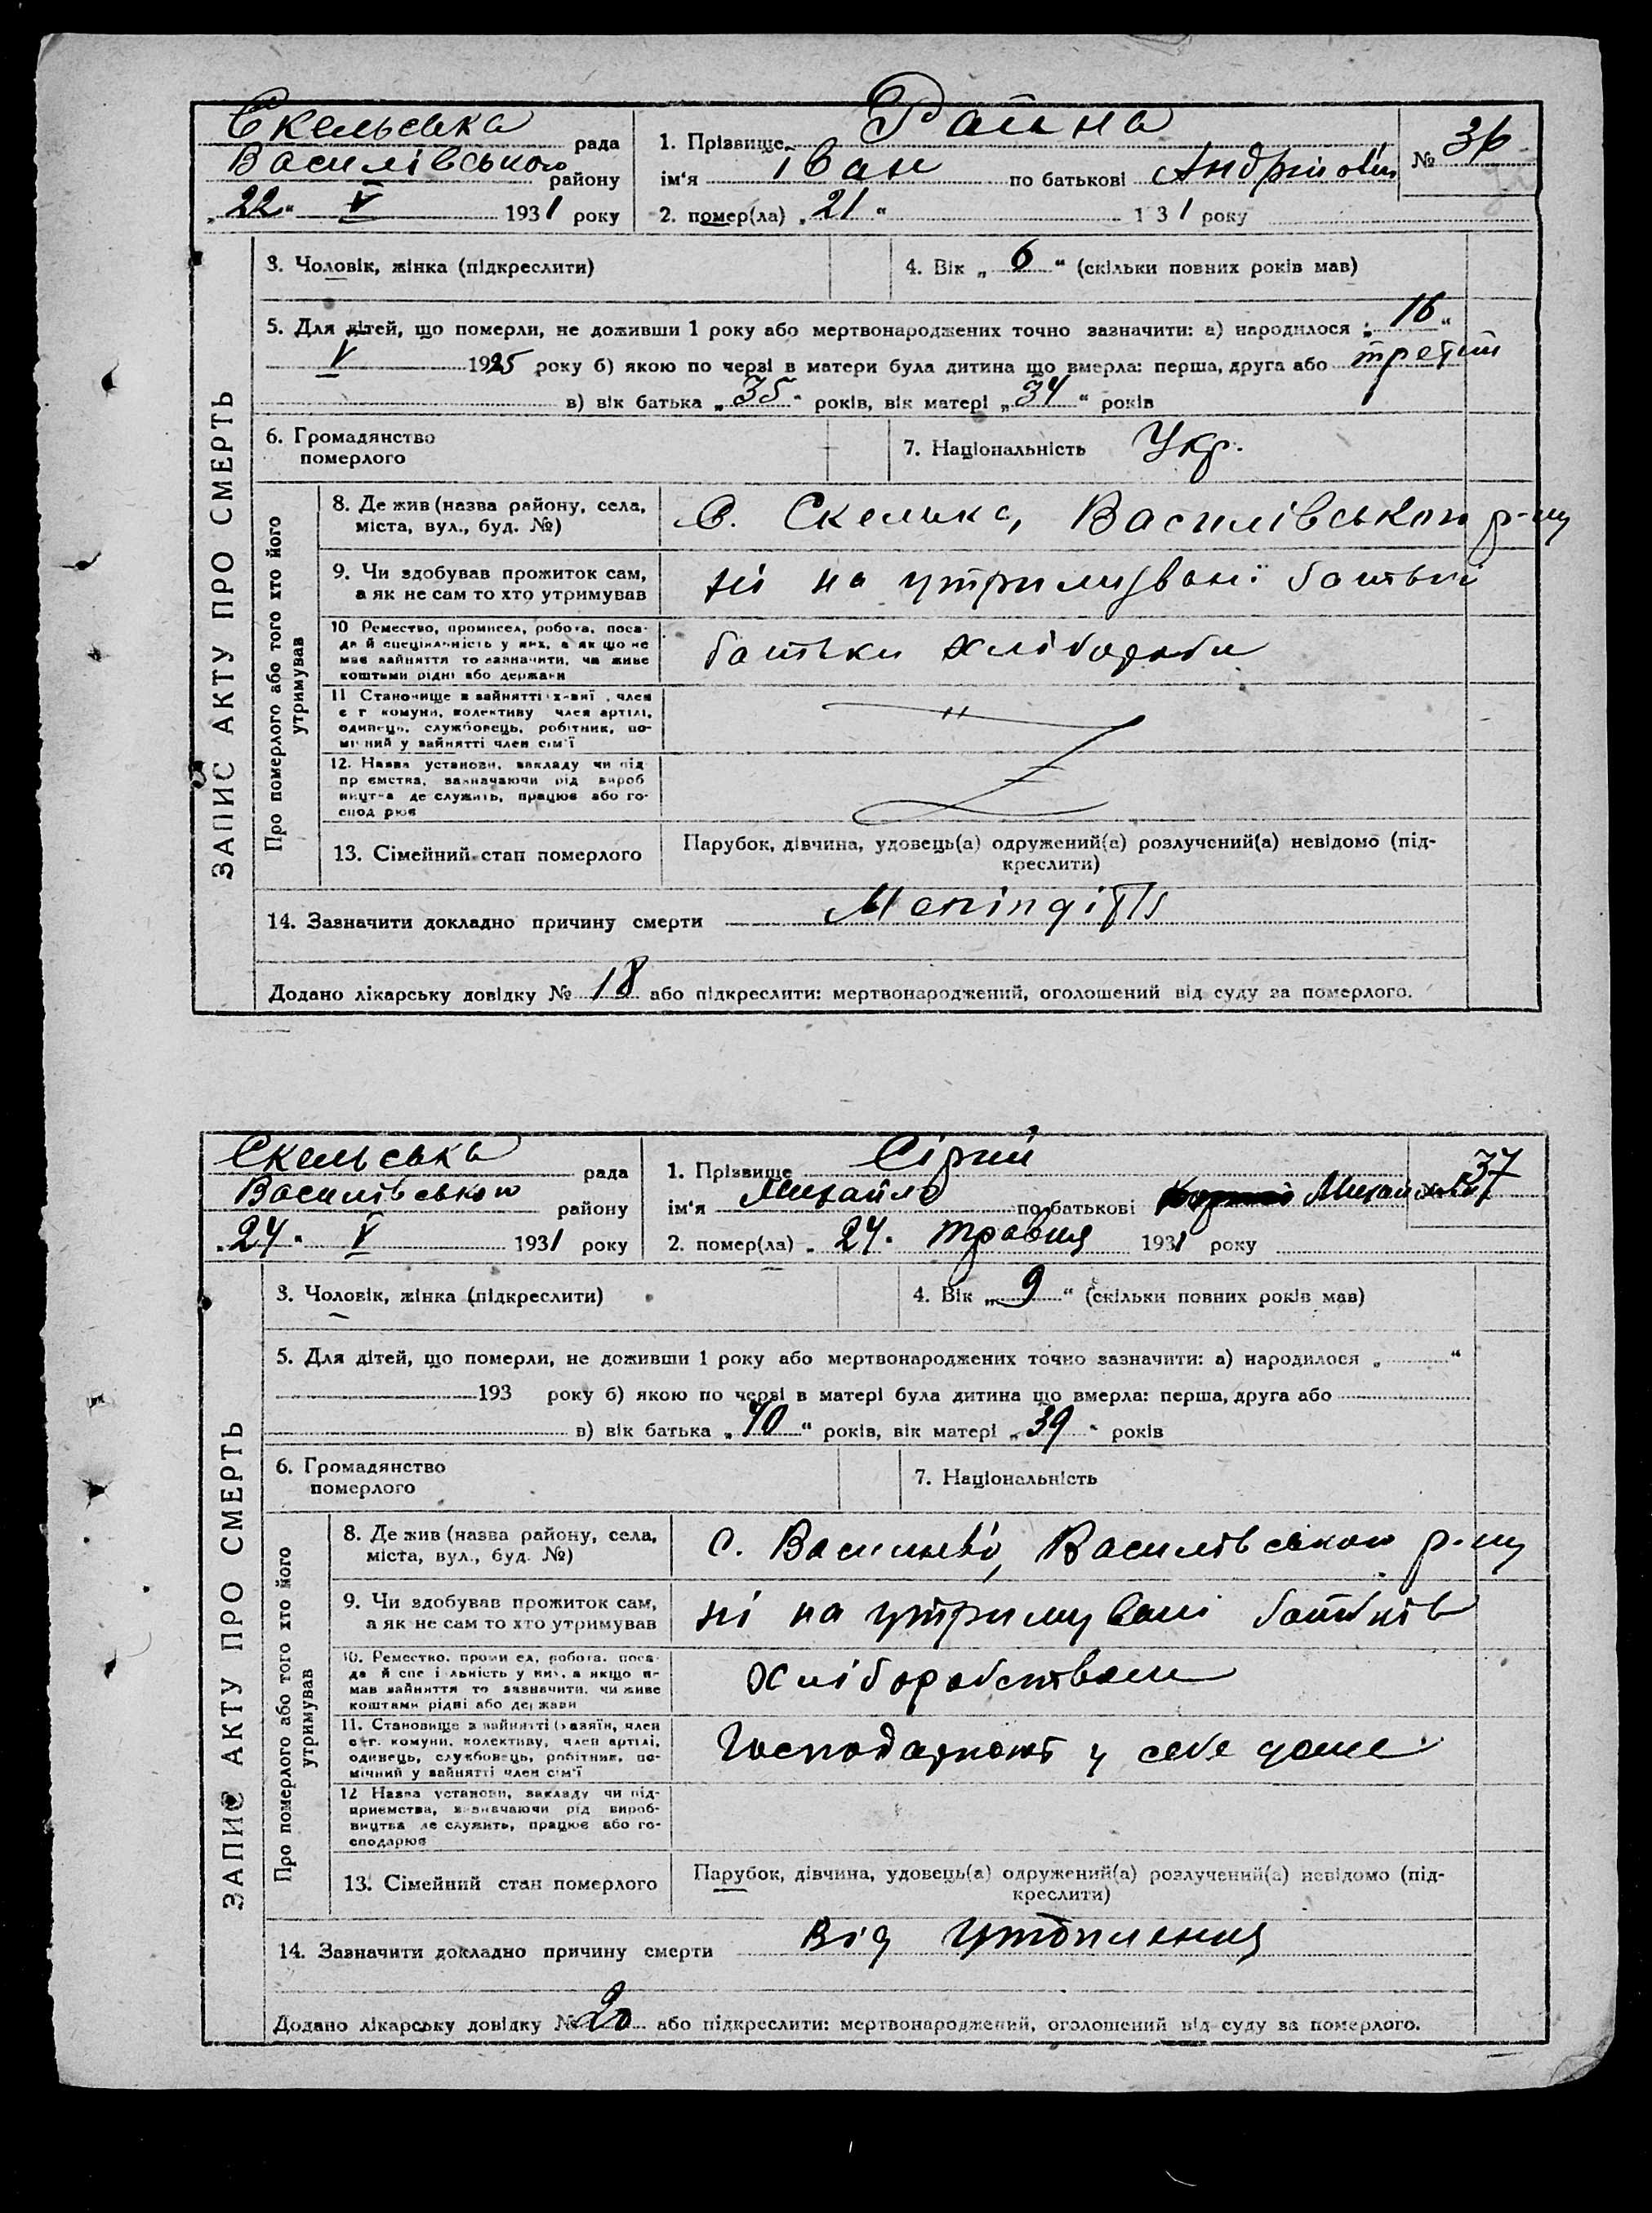 Скельська рада
Василівського району
„22“ V 1931 року
1. Прізвище Райна
ім'я Іван по батькові Андрійович
2. помер(ла) „21“ 1 31 року
№ 36
ЗАПИС АКТУ ПРО СМЕРТЬ
3. Чоловік, жінка (підкреслити)
4. Вік „6“ (скільки повних років мав)
5. Для дітей, що померли, не доживши 1 року або мертвонароджених точно зазначити: а) народилося „16“
V 1925 року б) якою по черзі в матери була дитина що вмерла: перша, друга або третій
в) вік батька „35“ років, вік матері „34“ років
6. Громадянство
померлого
7. Національність Укр.
Про померлого або того хто його
утримував
8. Де жив (назва району, села,
міста, вул., буд. №)
С. Скелька, Василівського р-ну
9. Чи здобував прожиток сам,
а як не сам то хто утримував
ні на утримувані батьки
10 Ремество, промисел, робота, поса-
да й спеціяльність у них, а як що не
мав зайняття то зазначити, чи живе
коштами рідні або держави
батьки хлібороби
11 Становище в зайнятті х-зяї , член
с г комуни, колективу член артілі,
одинець, службовець, робітник, по-
мічний у зайнятті член сім'ї
"
12. Назва установи, закладу чи під
пр ємства, зазначаючи рід вироб
ництва де служить, працює або го-
спод рює
13. Сімейний стан померлого
Парубок, дівчина, удовець(а) одружений(а) розлучений(а) невідомо (під-
креслити)
14. Зазначити докладно причину смерти Meningitis
Додано лікарську довідку № 18 або підкреслити: мертвонароджений, оголошений від суду за померлого.
Скельська рада
Василівського району
„24“ V 1931 року
1. Прізвище Сірий
ім'я Михайло по батькові Михайлович
2. помер(ла) „24“ травня 1931 року
37
ЗАПИС АКТУ ПРО СМЕРТЬ
3. Чоловік, жінка (підкреслити)
4. Вік „9“ (скільки повних років мав)
5. Для дітей, що померли, не доживши 1 року або мертвонароджених точно зазначити: а) народилося „ “
193 року б) якою по черзі в матері була дитина що вмерла: перша, друга або
в) вік батька „40“ років, вік матері „39“ років
6. Громадянство
померлого
7. Національність
Про померлого або того хто його
утримував
8. Де жив (назва району, села,
міста, вул., буд. №)
С. Василівського р-ну
9. Чи здобував прожиток сам,
а як не сам то хто утримував
ні на утримувані батьків
10. Ремество, проми ел, робота, поса-
да й спе і льність у них, а якщо не
мав зайняття то зазначити, чи живе
коштами рідні або держави
Хліборобством
11. Становище в зайнятті (хазяїн, член
с-г. комуни, колективу, член артілі,
одинець, службовець, робітник, по-
мічний у зайнятті член сім'ї
Господарюють у себе дома
12 Назва установи, закладу чи під-
приємства, зазначаючи рід вироб-
ництва де служить, працює або го-
сподарює
13. Сімейний стан померлого
Парубок, дівчина, удовець(а) одружений(а) розлучений(а) невідомо (під-
креслити)
14. Зазначити докладно причину смерти Від утоплення
Додано лікарську довідку № 20 або підкреслити: мертвонароджений, оголошений від суду за померлого.